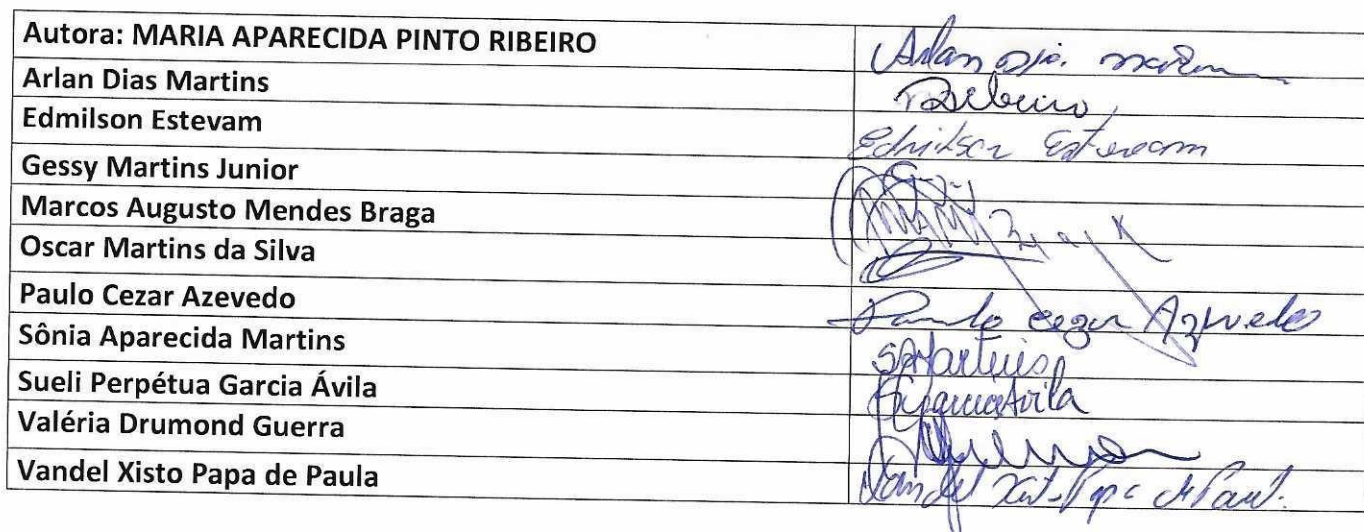 Autora: MARIA APARECIDA PINTO RIBEIRO Arlan
Arlan Dias Martins Ribeiro
Edmilson Estevam Edmilson Estevam
Gessy Martins Junior
Marcos Augusto Mendes Braga
Oscar Martins da Silva
Paulo Cezar Azevedo Paulo Cezar Azevedo
Sônia Aparecida Martins SAMartins
Sueli Perpétua Garcia Ávila
Valéria Drumond Guerra
Vandel Xisto Papa de Paula Vandel